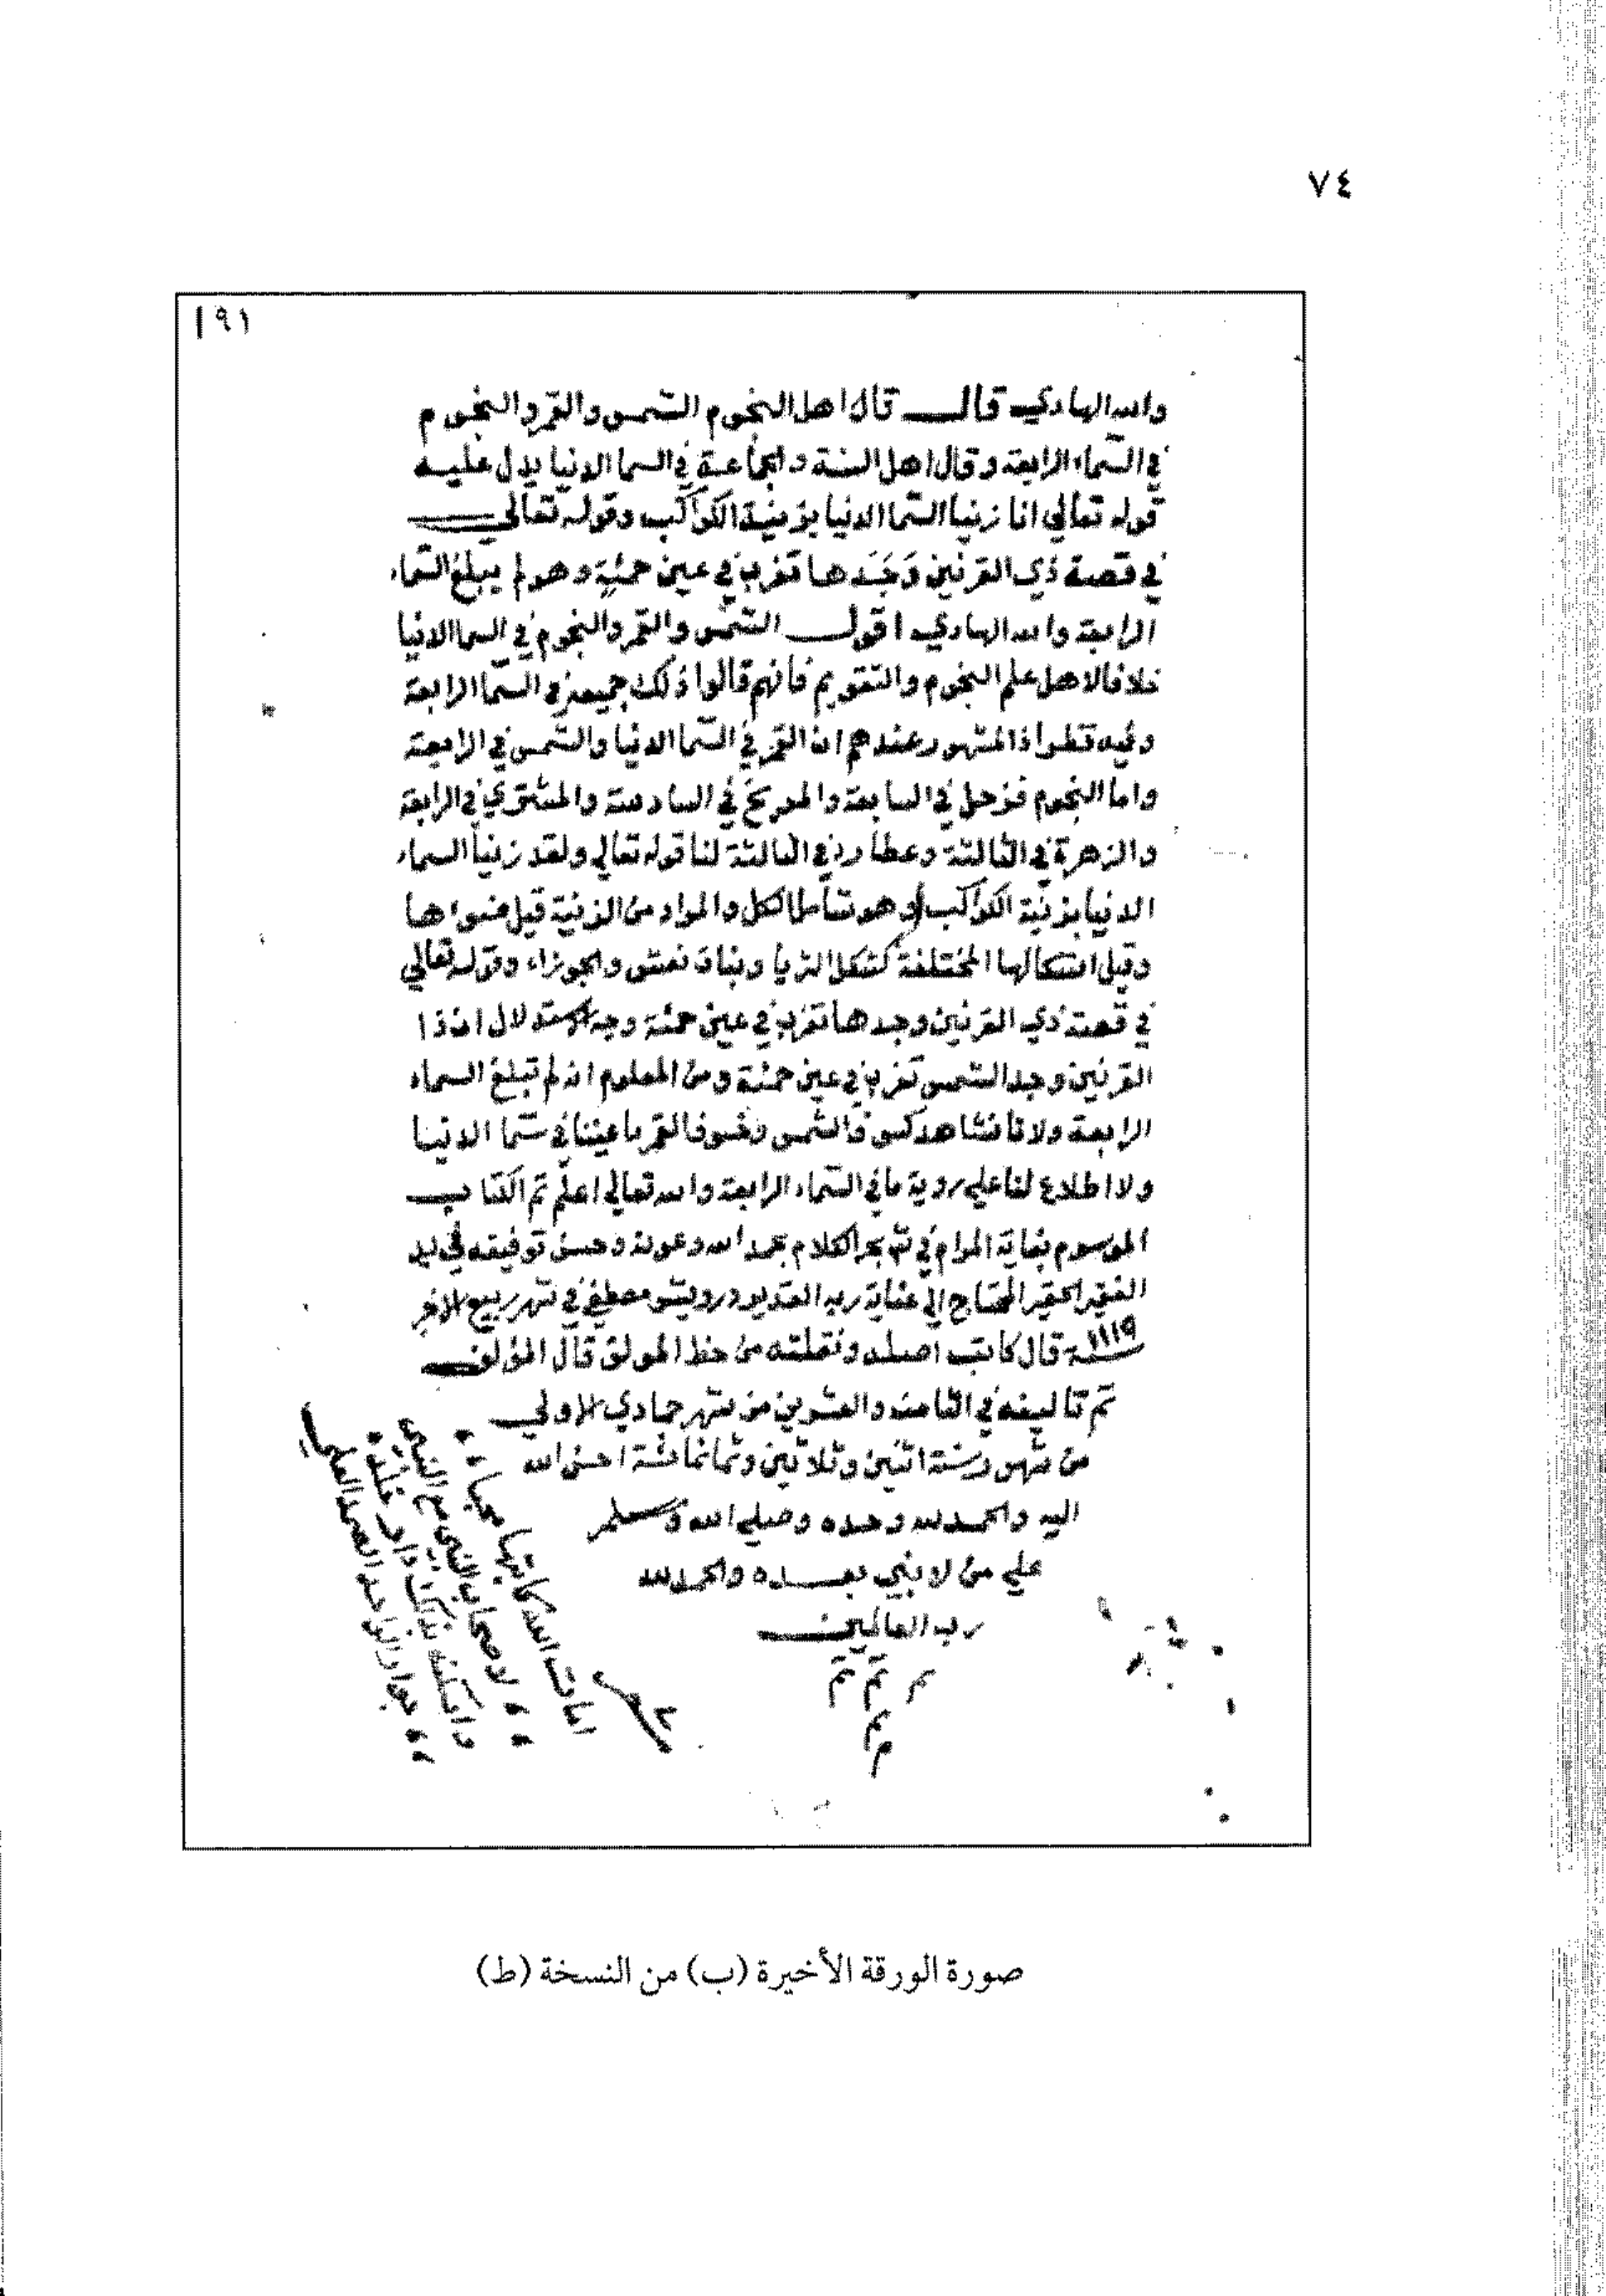 ٧٤
١٩١
والله الهادي قال قال اهل النجوم الشمس والقمر والنجوم
في السماء الرابعة وقال اهل السنة والجماعة في السما الدنيا يدل عليه
قوله تعالي انا زينا السما الدنيا بزينة الكواكب وقوله تعالي
في قصة ذي القرنين وَجَدها تغرب في عين حمئة وهو لم يبلغ السماء
الرابعة والله الهادي اقول الشمس والقمر والنجوم في السما الدنيا
خلافا لاهل علم النجوم والتقويم فانهم قالوا ذلك جميعه في السما الرابعة
وفيه نظر اذ المشهور عندهم ان القمر في السما الدنيا والشمس في الرابعة
واما النجوم فزحل في السابعة والمريخ في السادسة والمشتري في الرابعة
والزهرة في الثالثة وعطارد في الثالثة لنا قوله تعالي ولقد زينا السماء
الدنيا بزينة الكواكب وهو شامل الكل والمراد من الزينة قيل ضوءها
وقيل اشكالها المختلفة كشكل الثريا وبنات نعش والجوزاء وقوله تعالي
في قصة ذي القرنين وجدها تغرب في عين حمئة وجه الاستدلال ان ذا
القرنين وجد الشمس تغرب في عين حمئة ومن المعلوم انه لم تبلغ السماء
الرابعة ولانا نشاهد كسوف الشمس وخسوف القمر باعيننا في سما الدنيا
ولا اطلاع لنا علي روية ما في السماء الرابعة والله تعالي اعلم تم الكتاب
الموسوم بغاية المرام في شرح بحر الكلام بحمد الله وعونه وحسن توفيقه في يد
الفقير الحقير المحتاج الي عناية ربه القدير درويش مصطفي في شهر ربيع الاخر
سنة ١١١٩ قال كاتب اصله ونقلته من خط المولف قال المؤلف
تم تاليفه في الثامن والعشرين من شهر جمادي الاولي
من شهور سنة اثنين وثلاثين وثمانمائة احسن الله
اليه والحمد لله وحده وصلي الله وسلم
علي من لا نبي بعده والحمد لله
رب العالمين
تم تم تم
تم
شعر
امات الله كاتبها
لاصحاب النبي مع النبي
واسكنه بذلك دار خلد
جوار الواحد الصمد العلي
صورة الورقة الأخيرة (ب) من النسخة (ط)